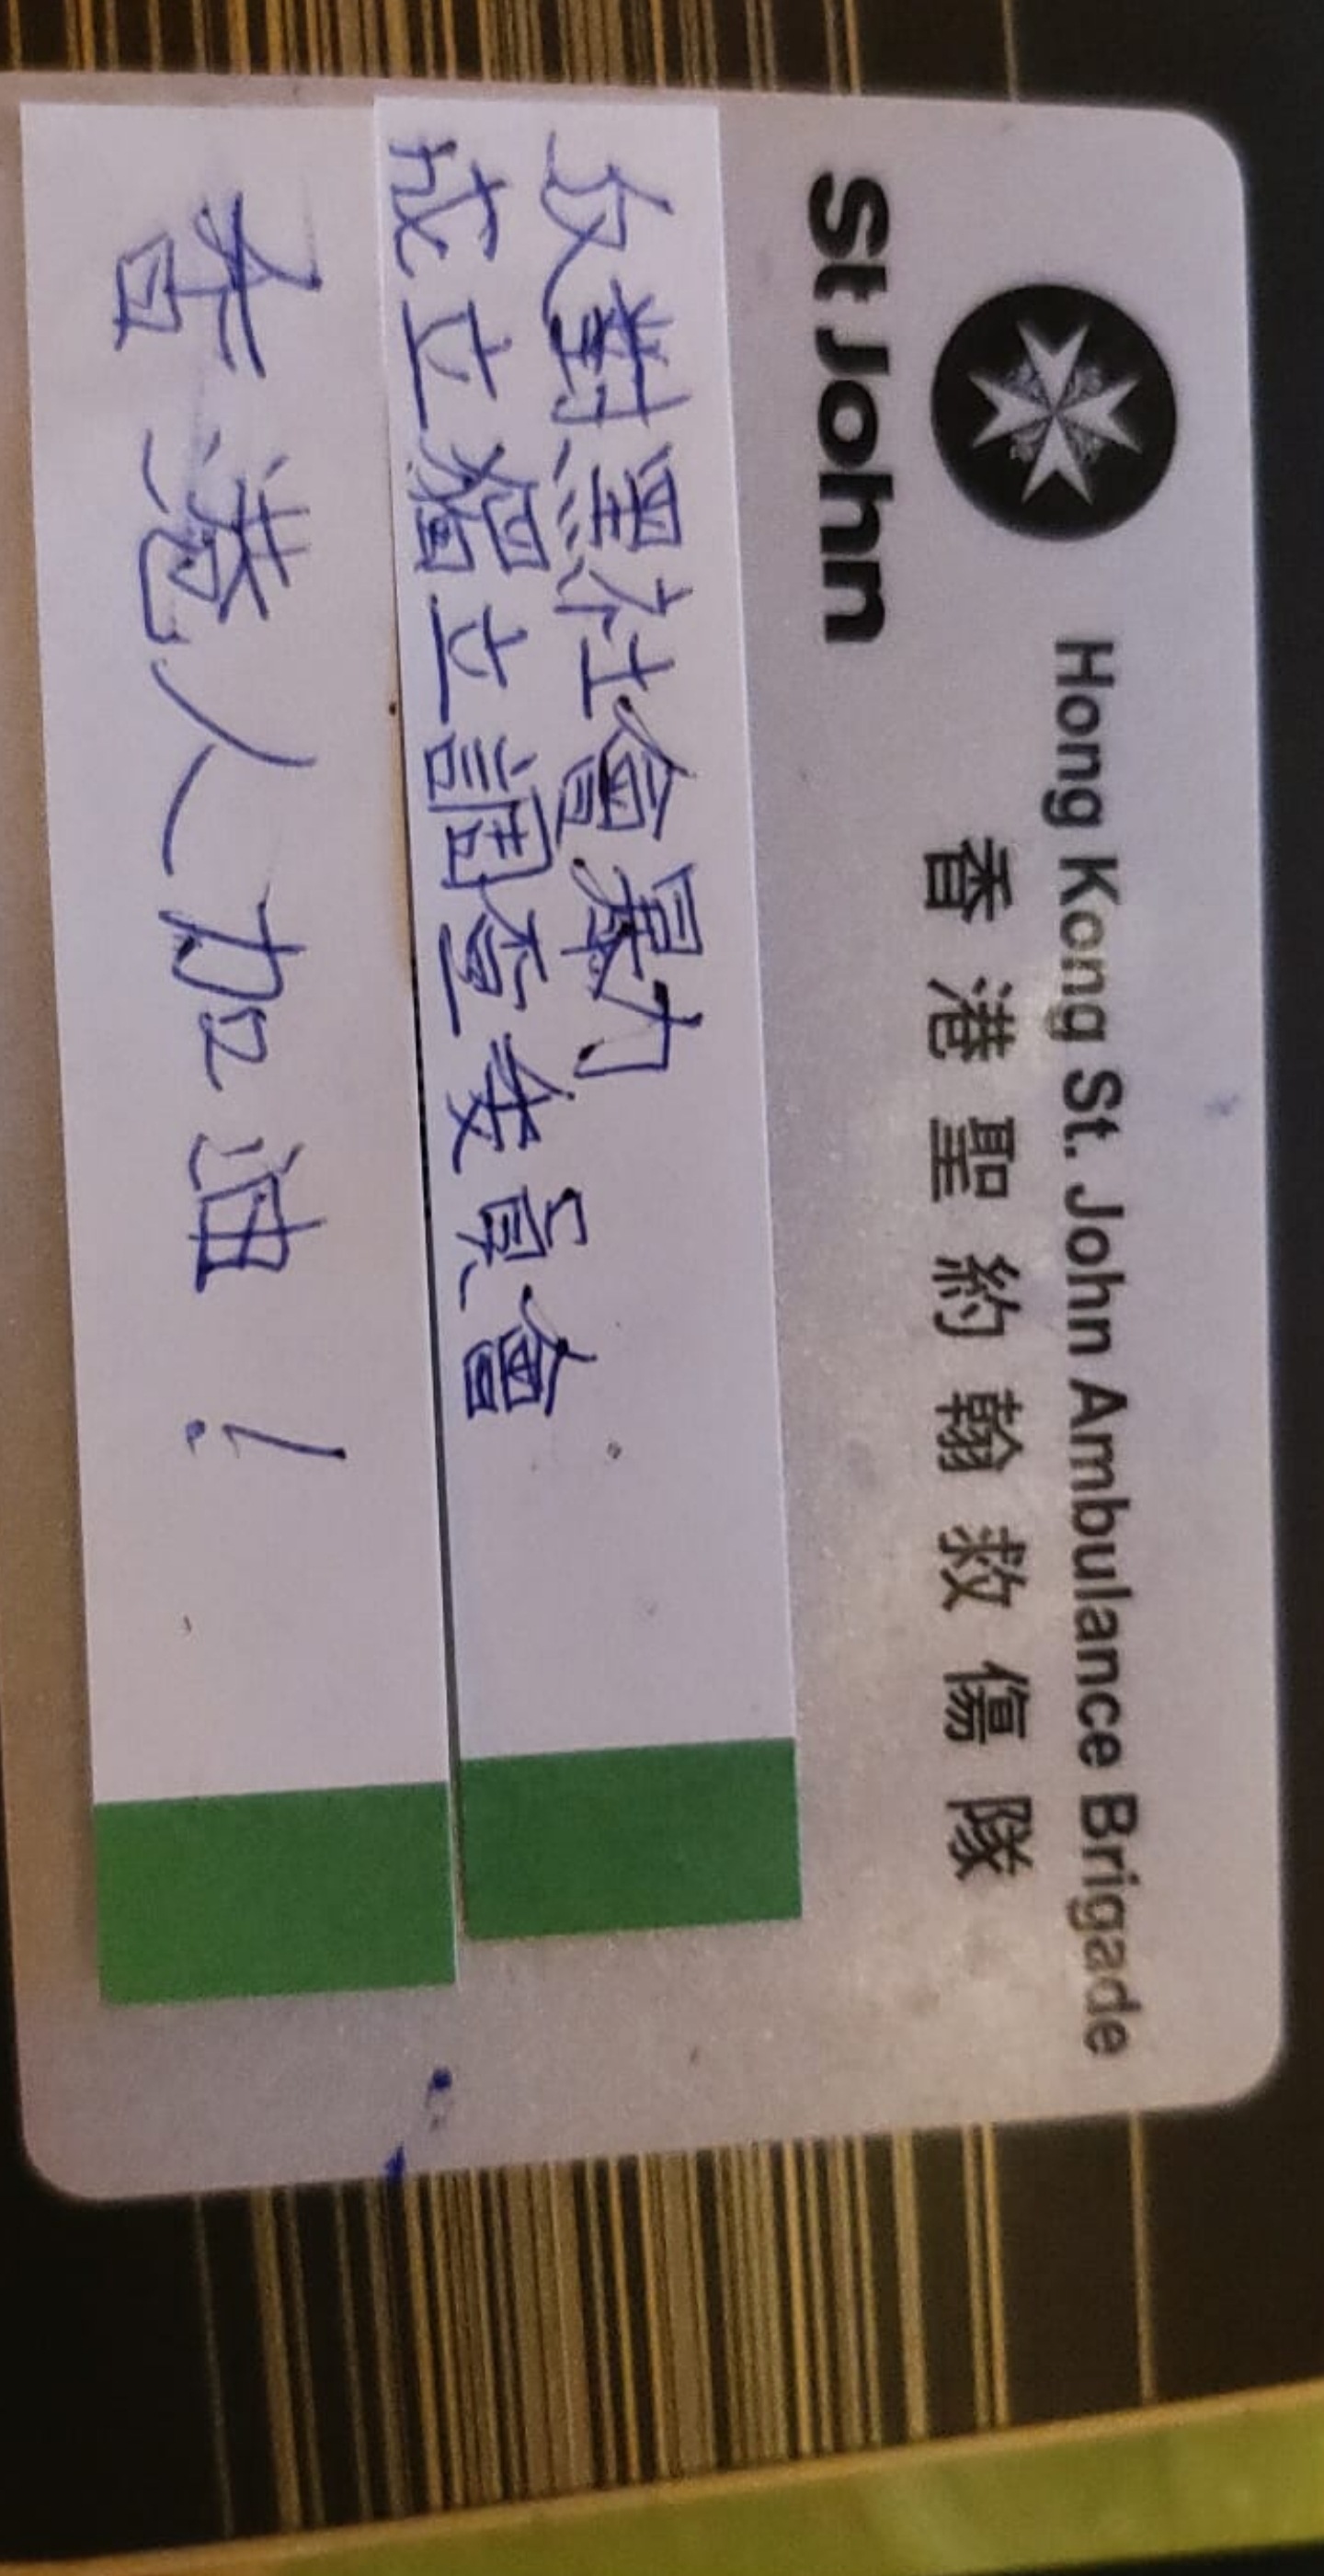 Hong Kong St. John Ambulance Brigade
香港聖約翰救傷隊
St John
反對黑社會暴力
成立獨立調查委員會
香港人加油！